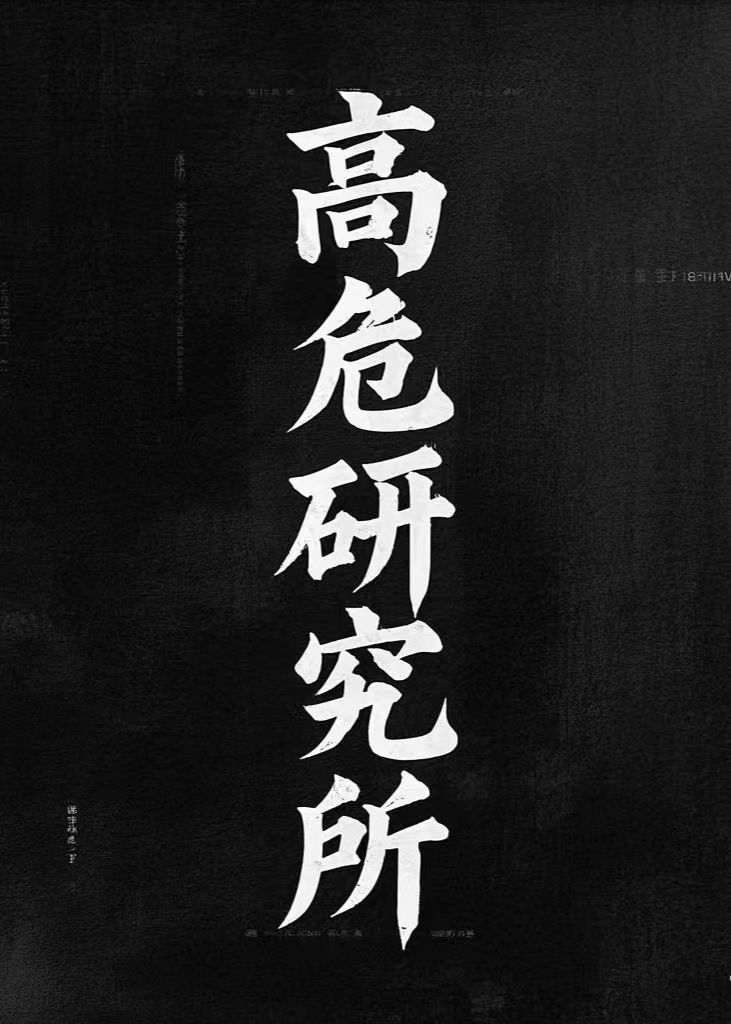 高危研究所